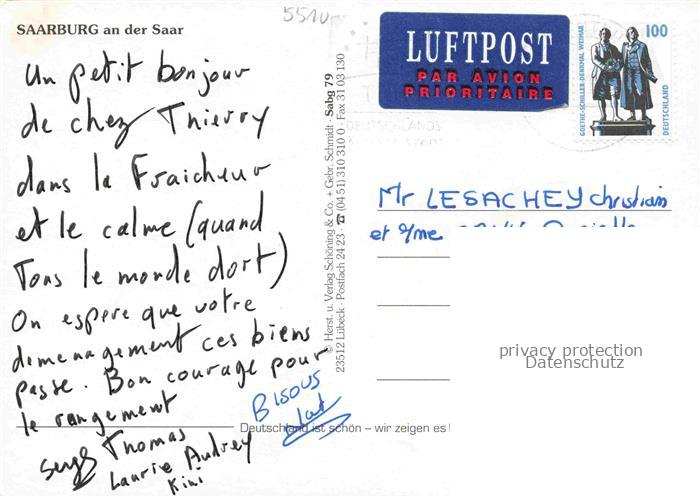 SAARBURG an der Saar
5510
un petit bonjour
de chez Thierry
dans la Fraicheur
et le calme (quand
Tous le monde dort)
On espere que votre
demenagement ces biens
passe. Bon courage pour
le rangement
Bisous
Serge Thomas
Laurie Audrey
Kini
Deutschland ist schön – wir zeigen es!
© Herst. u. Verlag Schöning & Co. + Gebr. Schmidt · Sabg 79
23512 Lübeck · Postfach 24 23 · ☎ (04 51) 310 310 0 · Fax 31 03 130
LUFTPOST
PAR AVION
PRIORITAIRE
DEUTSCHLANDS
100
GOETHE-SCHILLER-DENKMAL WEIMAR
DEUTSCHLAND
Mr LESACHEY christian
et o/me
privacy protection
Datenschutz